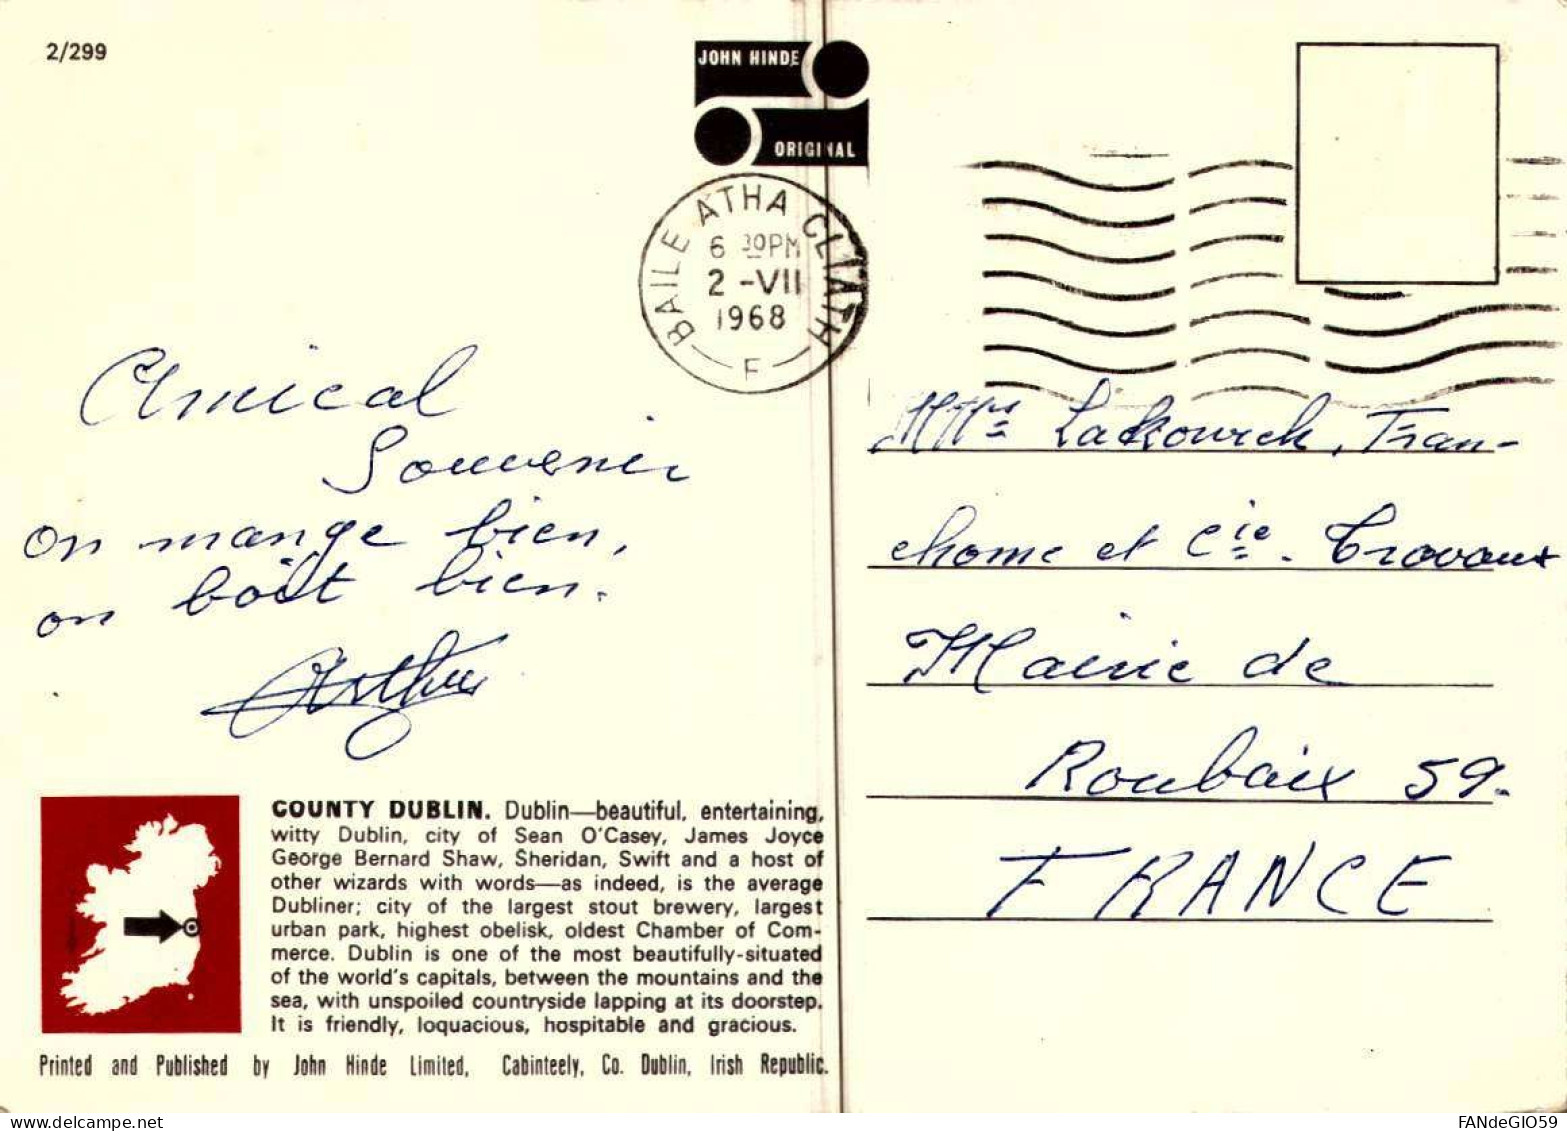 2/299
JOHN HINDE
ORIGINAL
BAILE ATHA CLIATH
6 30PM
2 -VII
1968
F
Amical
Souvenir
on mange bien,
on boit bien.
Arthur
Lakourek, Fran-
chome et Cie. Travaux
Mairie de
Roubaix 59.
FRANCE
COUNTY DUBLIN. Dublin—beautiful, entertaining,
witty Dublin, city of Sean O'Casey, James Joyce
George Bernard Shaw, Sheridan, Swift and a host of
other wizards with words—as indeed, is the average
Dubliner; city of the largest stout brewery, largest
urban park, highest obelisk, oldest Chamber of Com-
merce. Dublin is one of the most beautifully-situated
of the world's capitals, between the mountains and the
sea, with unspoiled countryside lapping at its doorstep.
It is friendly, loquacious, hospitable and gracious.
Printed and Published by John Hinde Limited, Cabinteely, Co. Dublin, Irish Republic.
FANdeGIO59